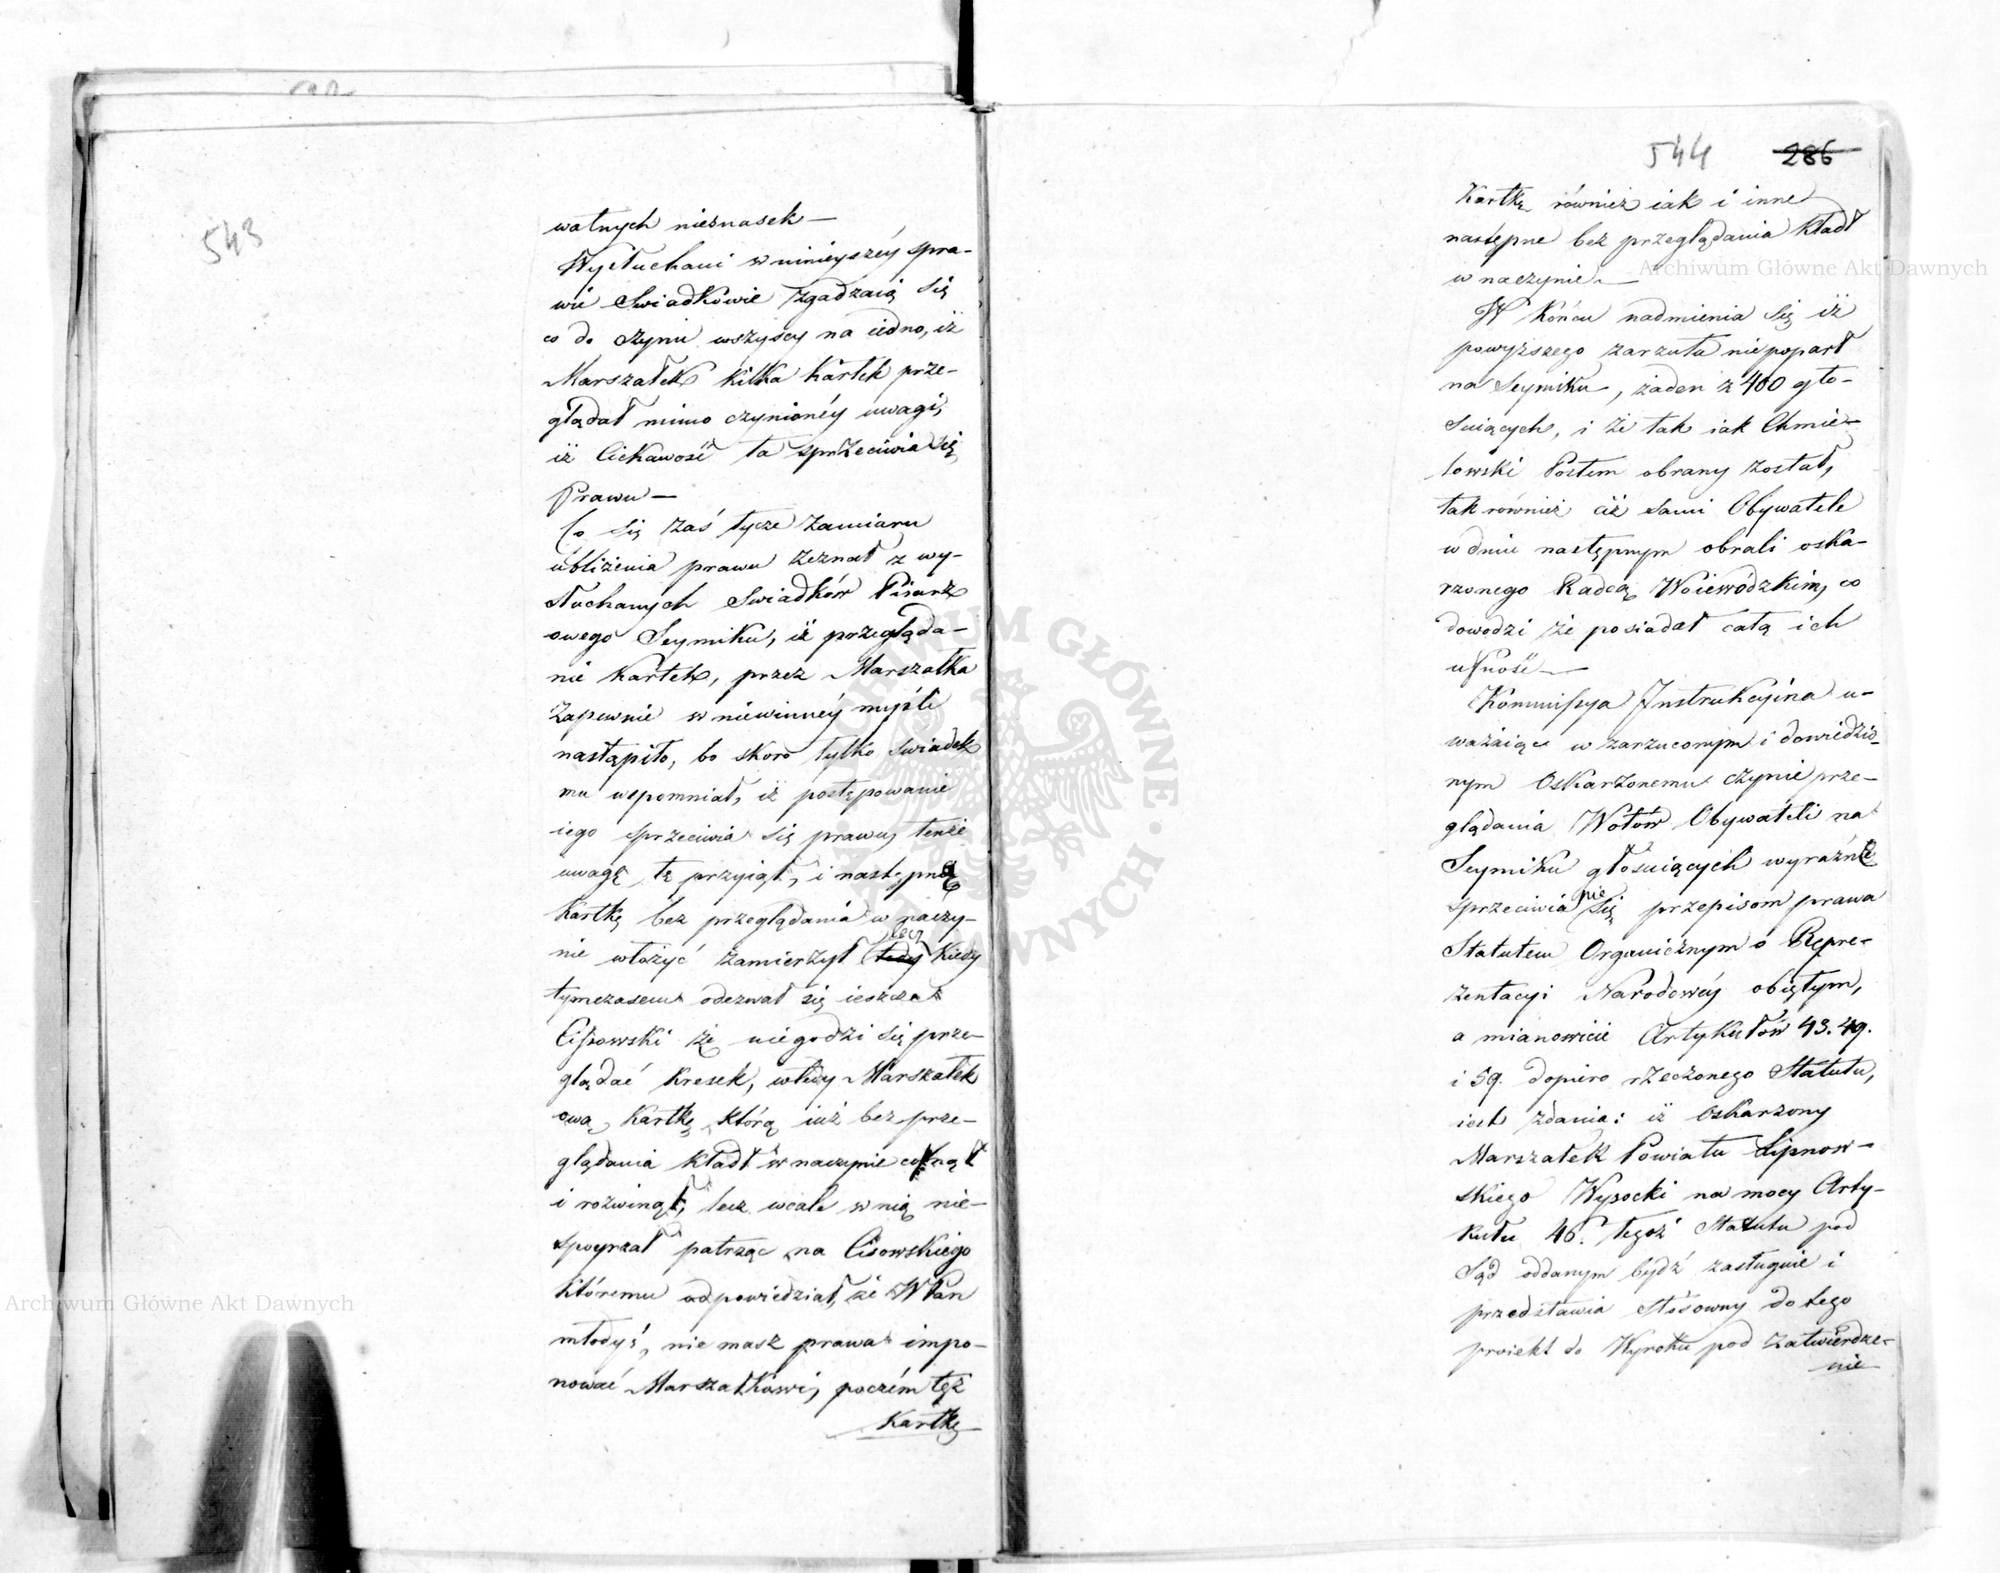 543
watnych niesnasek —
Wysłuchani w ninieyszéy spra-
wie Swiadkowie zgadzaią się
co do czynu wszyscy na iedno, iż
Marszałek kilka kartek prze-
glądał mimo czynionéy uwagi,
iż Ciekawość ta sprzeciwia się
Prawu —
Co się zaś tycze zamiaru
ubliżenia prawu zeznał z wy-
słuchanych Swiadków Pisarz
owego Seymiku, iż przegląda-
nie kartek, przez Marszałka
zapewnie w niewinnéy myśli
nastąpiło, bo skoro tylko swiadek
mu wspomniał, iż postępowanie
iego sprzeciwia się prawu, tenże
uwagę tę przyiął, i następną
kartkę bez przeglądania w naczy-
nie włożyć zamierzył tedy lecz kiedy
tymczasem odezwał się ieszcze
Cissowski że niegodzi się prze-
glądać kresek, wtedy Marszałek
ową kartkę którą iuż bez prze-
glądania kładł w naczynie cofnął
i rozwinął, lecz wcale w nią nie-
spoyrzał patrząc na Cisowskiego
któremu odpowiedział, że WPan
młodyś, nie masz prawa impo-
nować Marszałkowi, poczém też
Kartkę
544 286
Kartkę również iak i inne
następne bez przeglądania kładł
w naczynie. —
W końcu nadmienia się iż
powyższego zarzutu niepoparł
na Seymiku, żaden z 400 gło-
suiących, i że tak iak Chmie-
lowski Posłem obrany został,
tak również ciż sami Obywatele
w dniu następnym obrali oska-
rzonego Radcą Woiewódzkim, co
dowodzi że posiadał całą ich
ufność —
Kommissya Instrukcyina u-
ważaiąc w zarzuconym i dowiedzio-
nym Oskarzonemu czynie prze-
glądania Wotów Obywateli na
Seymiku głosuiących wyraźne
sprzeciwianie się przepisom prawa
Statutem Organicznym o Repre-
zentacyi Narodowéy obiętym,
a mianowicie Artykułów 43. 49.
i 59. dopiero rzeczonego Statutu,
iest zdania: iż Oskarzony
Marszałek Powiatu Lipnow-
skiego Wysocki na mocy Arty-
kułu 46. tegoż Statutu pod
Sąd oddanym bydź zasługuie i
przedstawia stósowny do tego
proiekt do Wyroku pod zatwierdze-
nie
Archiwum Główne Akt Dawnych
Archiwum Główne Akt Dawnych
ARCHIWUM GŁÓWNE AKT DAWNYCH